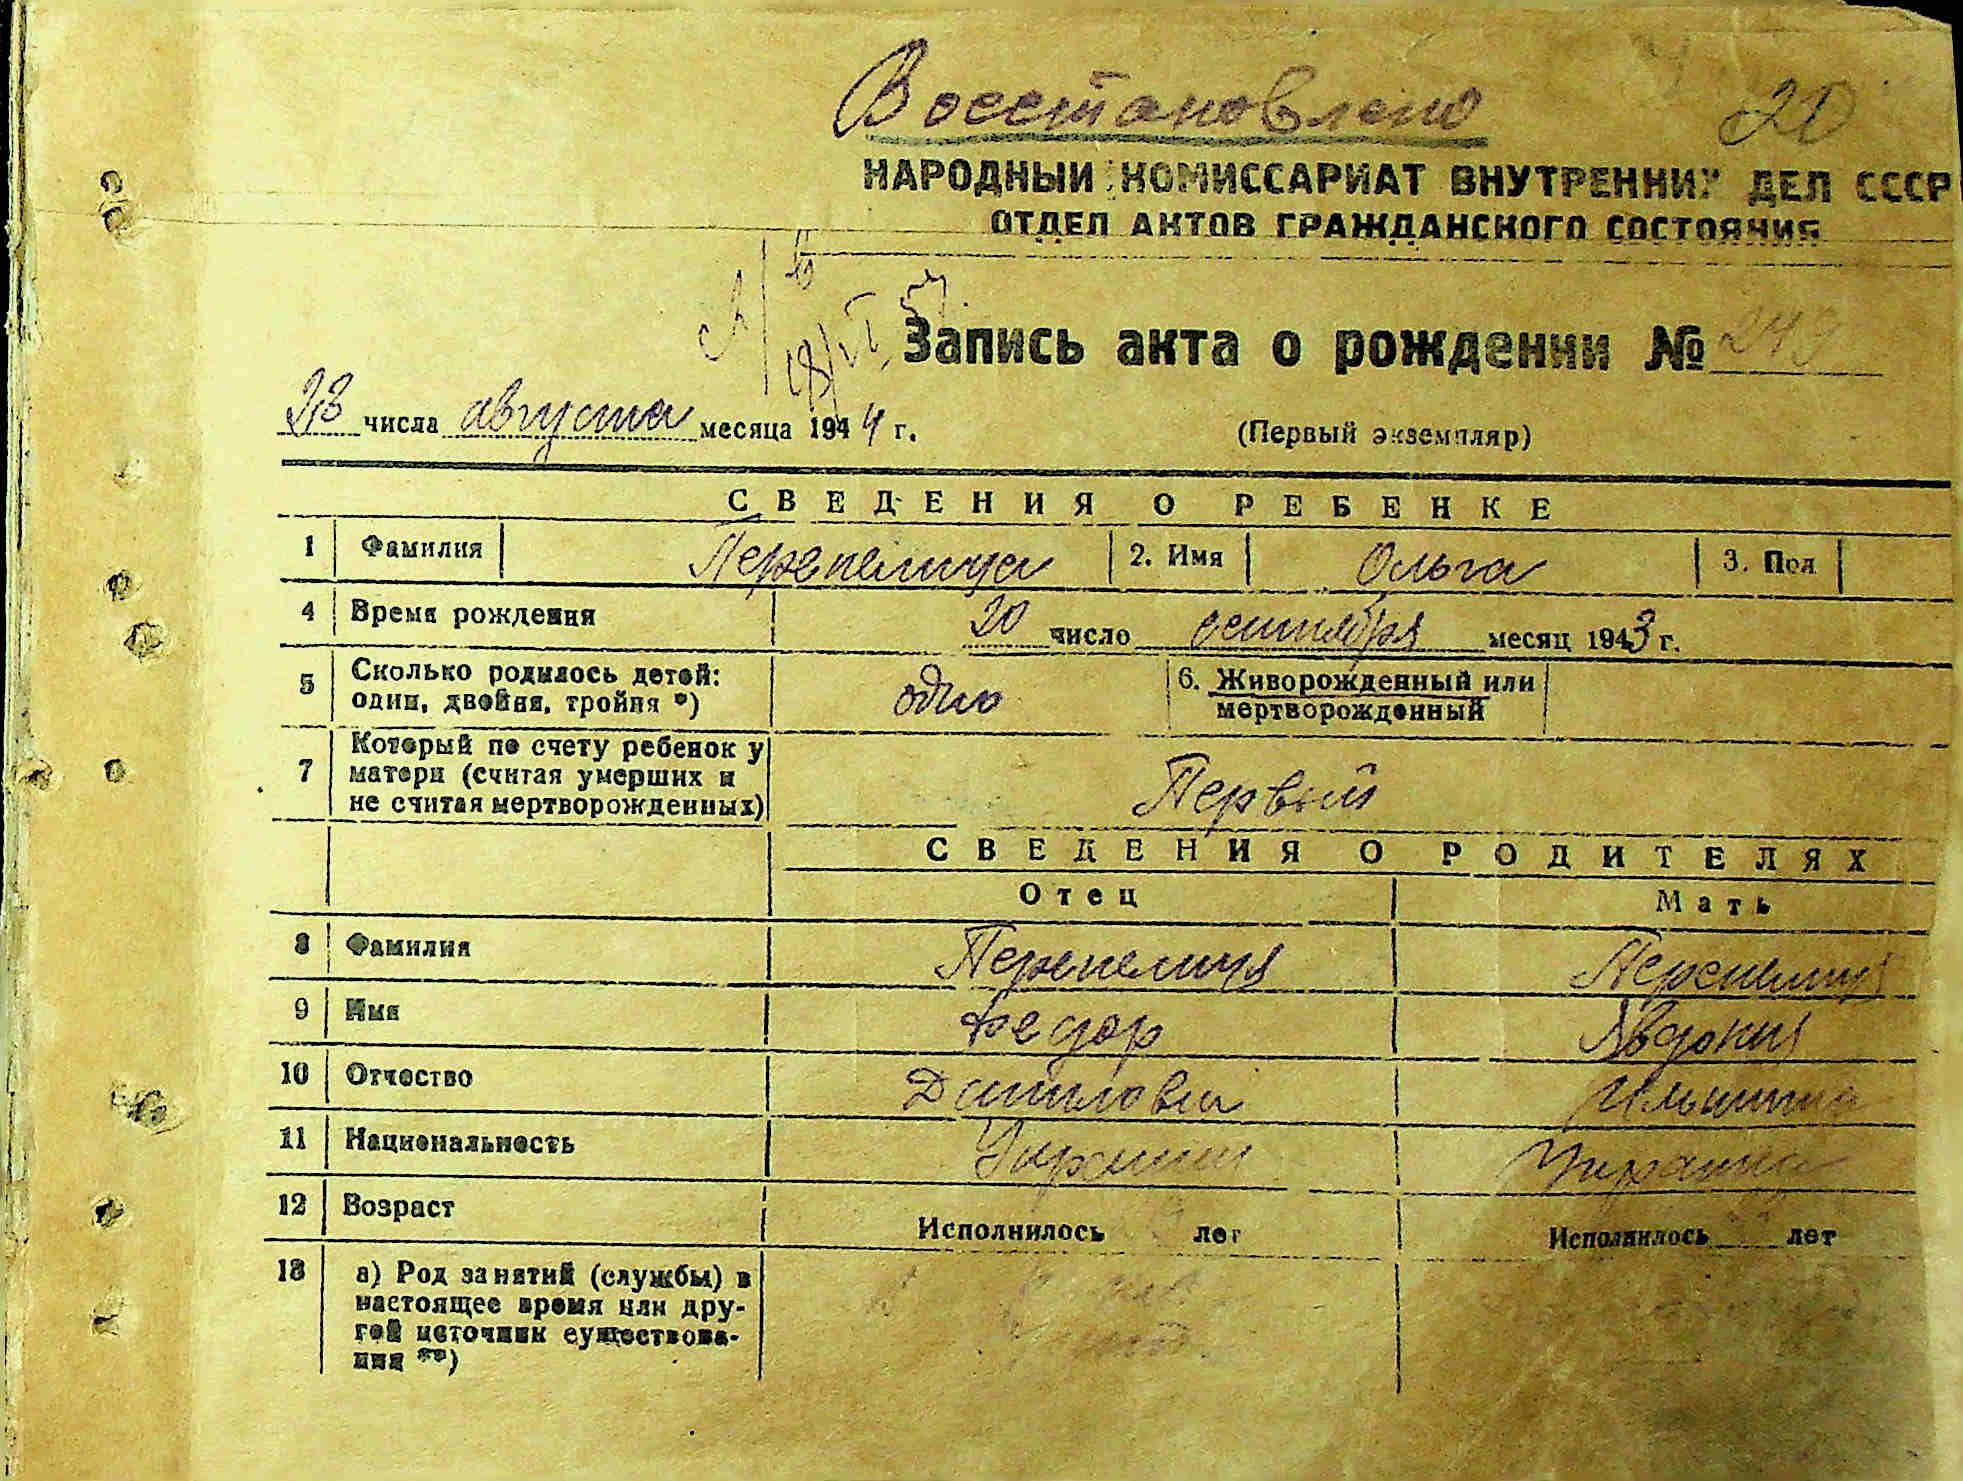 Восстановлено 20
НАРОДНЫЙ КОМИССАРИАТ ВНУТРЕННИХ ДЕЛ СССР
ОТДЕЛ АКТОВ ГРАЖДАНСКОГО СОСТОЯНИЯ
18/VI 57.
Запись акта о рождении № 249
23 числа августа месяца 1944 г.
(Первый экземпляр)
СВЕДЕНИЯ О РЕБЕНКЕ
1 Фамилия Перепелица 2. Имя Ольга 3. Пол
4 Время рождения 20 число сентября месяц 1943 г.
5 Сколько родилось детей: один, двойня, тройня *) одно 6. Живорожденный или мертворожденный
7 Который по счету ребенок у матери (считая умерших и не считая мертворожденных) Первый
СВЕДЕНИЯ О РОДИТЕЛЯХ
Отец Мать
8 Фамилия Перепелиця Перепелиця
9 Имя Федор Явдокия
10 Отчество Данилович Ильинична
11 Национальность Украинец Украинка
12 Возраст Исполнилось лет Исполнилось лет
13 а) Род занятий (службы) в
настоящее время или дру-
гой источник существова-
ния **)